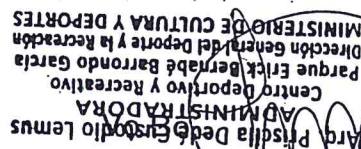 Arq. Priscila Dedet Custodio Lemus
ADMINISTRADORA
Centro Deportivo y Recreativo
Parque Erick Bernabé Barrondo García
Dirección General del Deporte y la Recreación
MINISTERIO DE CULTURA Y DEPORTES